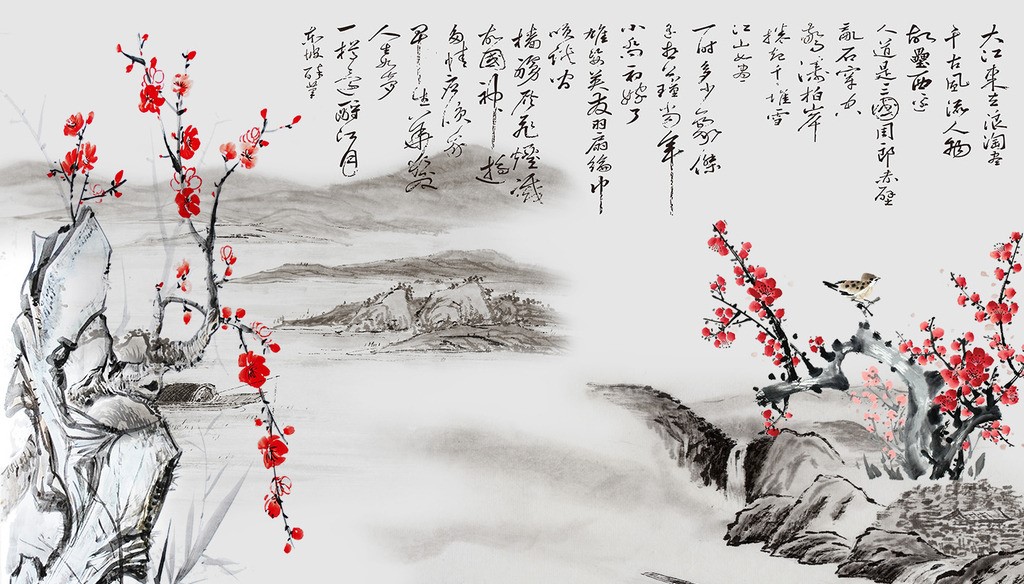 大江東去浪淘盡
千古風流人物
故壘西邊
人道是三國周郎赤壁
亂石穿空
驚濤拍岸
捲起千堆雪
江山如畫
一時多少豪傑
遙想公瑾當年
小喬初嫁了
雄姿英發羽扇綸巾
談笑間
檣艣灰飛煙滅
故國神遊
多情應笑我
早生華髮
人生如夢
一樽還酹江月
東坡醉筆